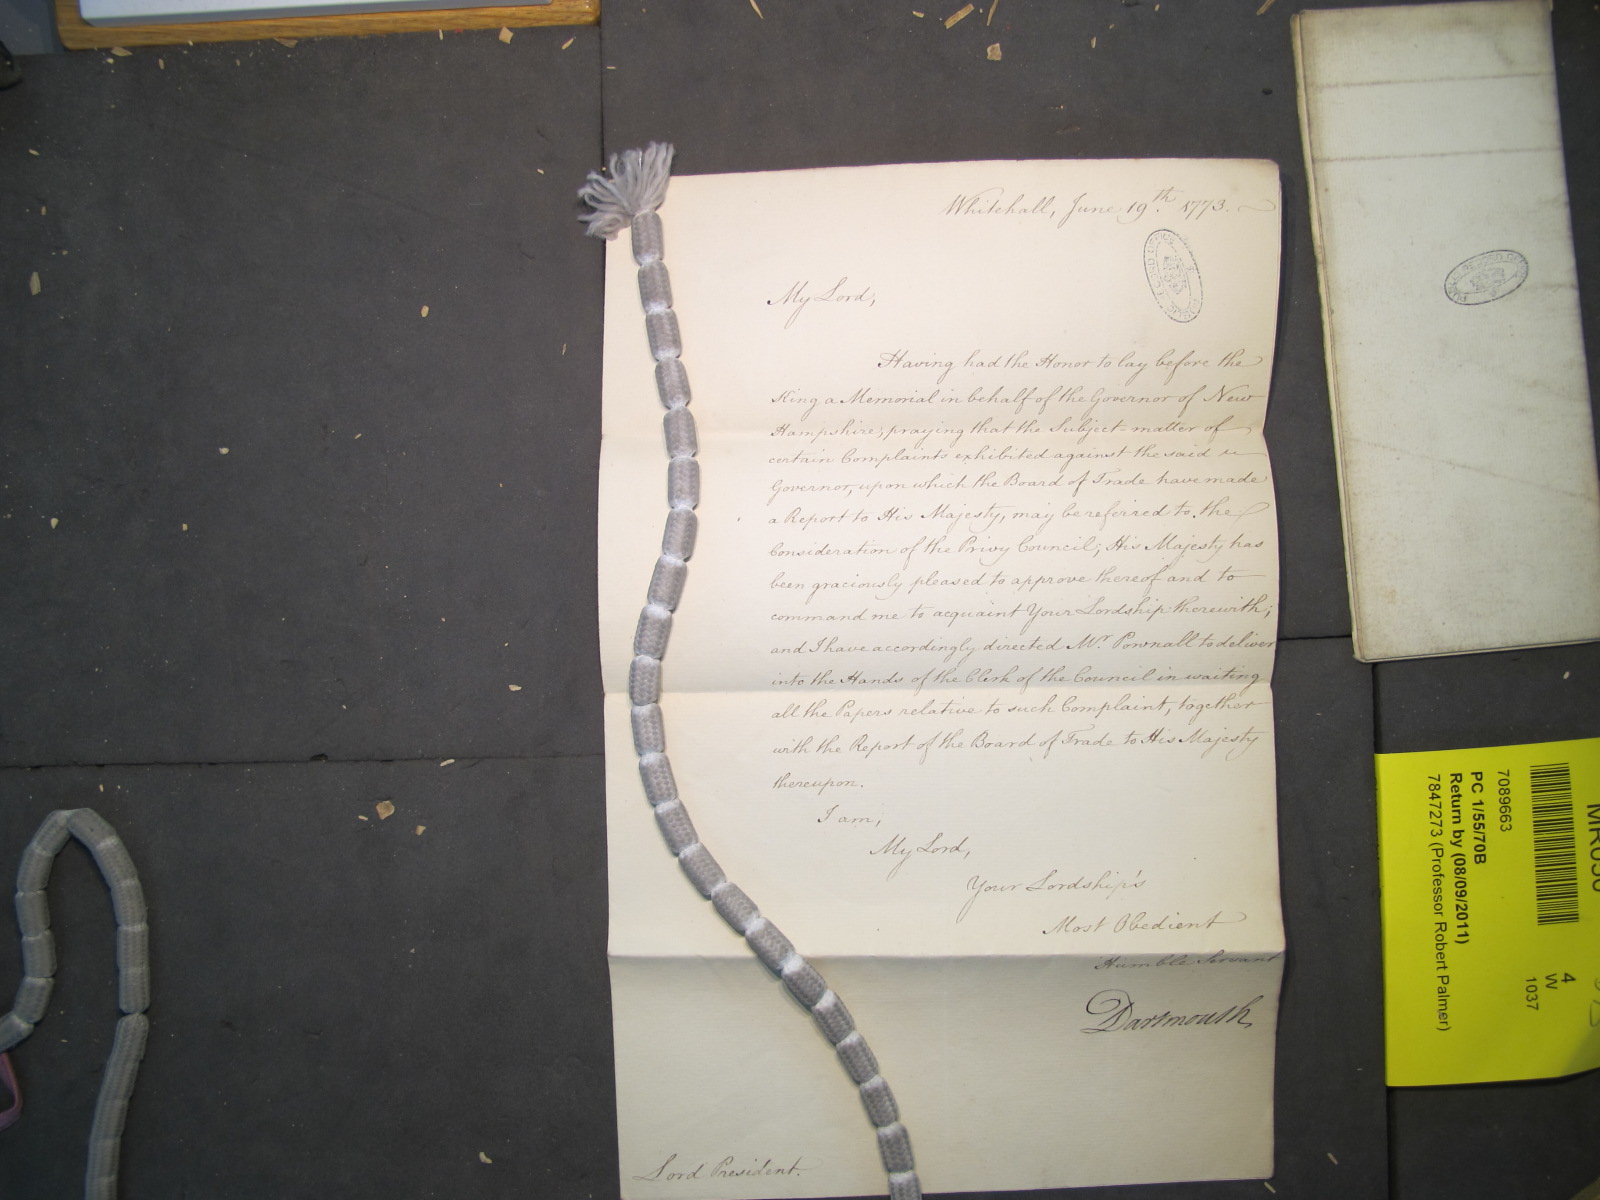 Whitehall, June 19th. 1773.
My Lord,
Having had the Honor to lay before the
King a Memorial in behalf of the Governor of New
Hampshire, praying that the Subject-matter of
certain Complaints exhibited against the said
Governor, upon which the Board of Trade have made
a Report to His Majesty, may be referred to the
Consideration of the Privy Council; His Majesty has
been graciously pleased to approve thereof and to
command me to acquaint Your Lordship therewith;
and I have accordingly directed Mr. Pownall to deliver
into the Hands of the Clerk of the Council in waiting
all the Papers relative to such Complaint, together
with the Report of the Board of Trade to His Majesty
thereupon.
I am,
My Lord,
Your Lordship's
Most Obedient
Humble Servant
Dartmouth
Lord President.
PUBLIC RECORD OFFICE
7089663
PC 1/55/70B
Return by (08/09/2011)
7847273 (Professor Robert Palmer)
4
W
1037